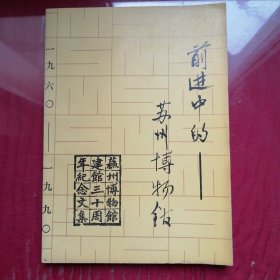 前进中的——
苏州博物馆
蘇州博物館
建館三十周
年紀念文集
一九六〇——一九九〇